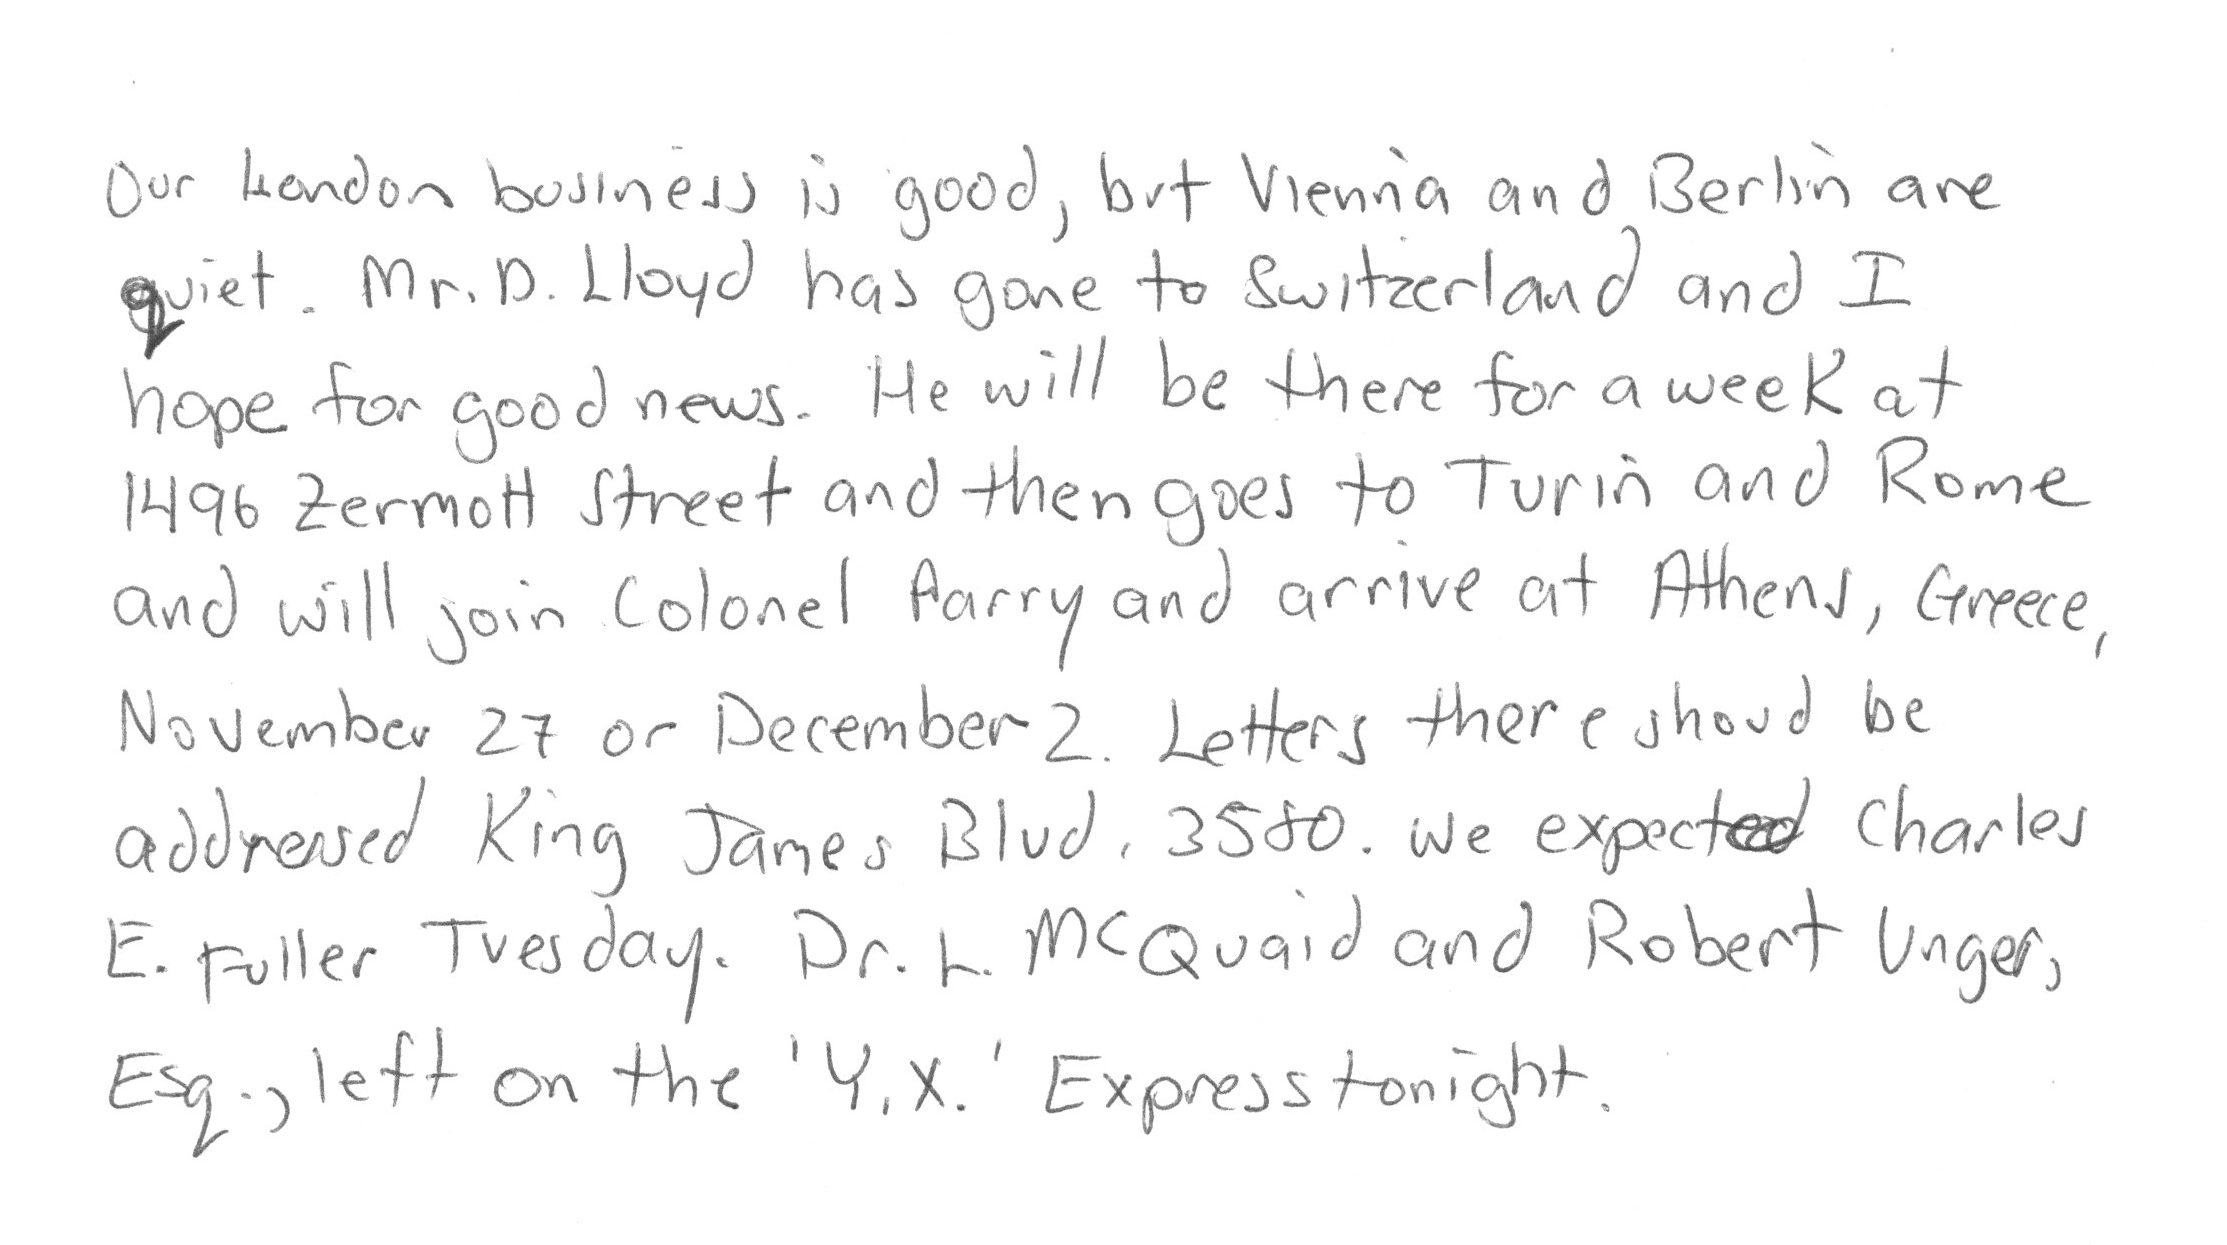 Our London business is good, but Vienna and Berlin are
quiet. Mr. D. Lloyd has gone to Switzerland and I
hope for good news. He will be there for a week at
1496 Zermott Street and then goes to Turin and Rome
and will join Colonel Parry and arrive at Athens, Greece,
November 27 or December 2. Letters there shoud be
addressed King James Blvd. 3580. We expected Charles
E. Fuller Tuesday. Dr. L. McQuaid and Robert Unger,
Esq., left on the 'Y.X.' Express tonight.